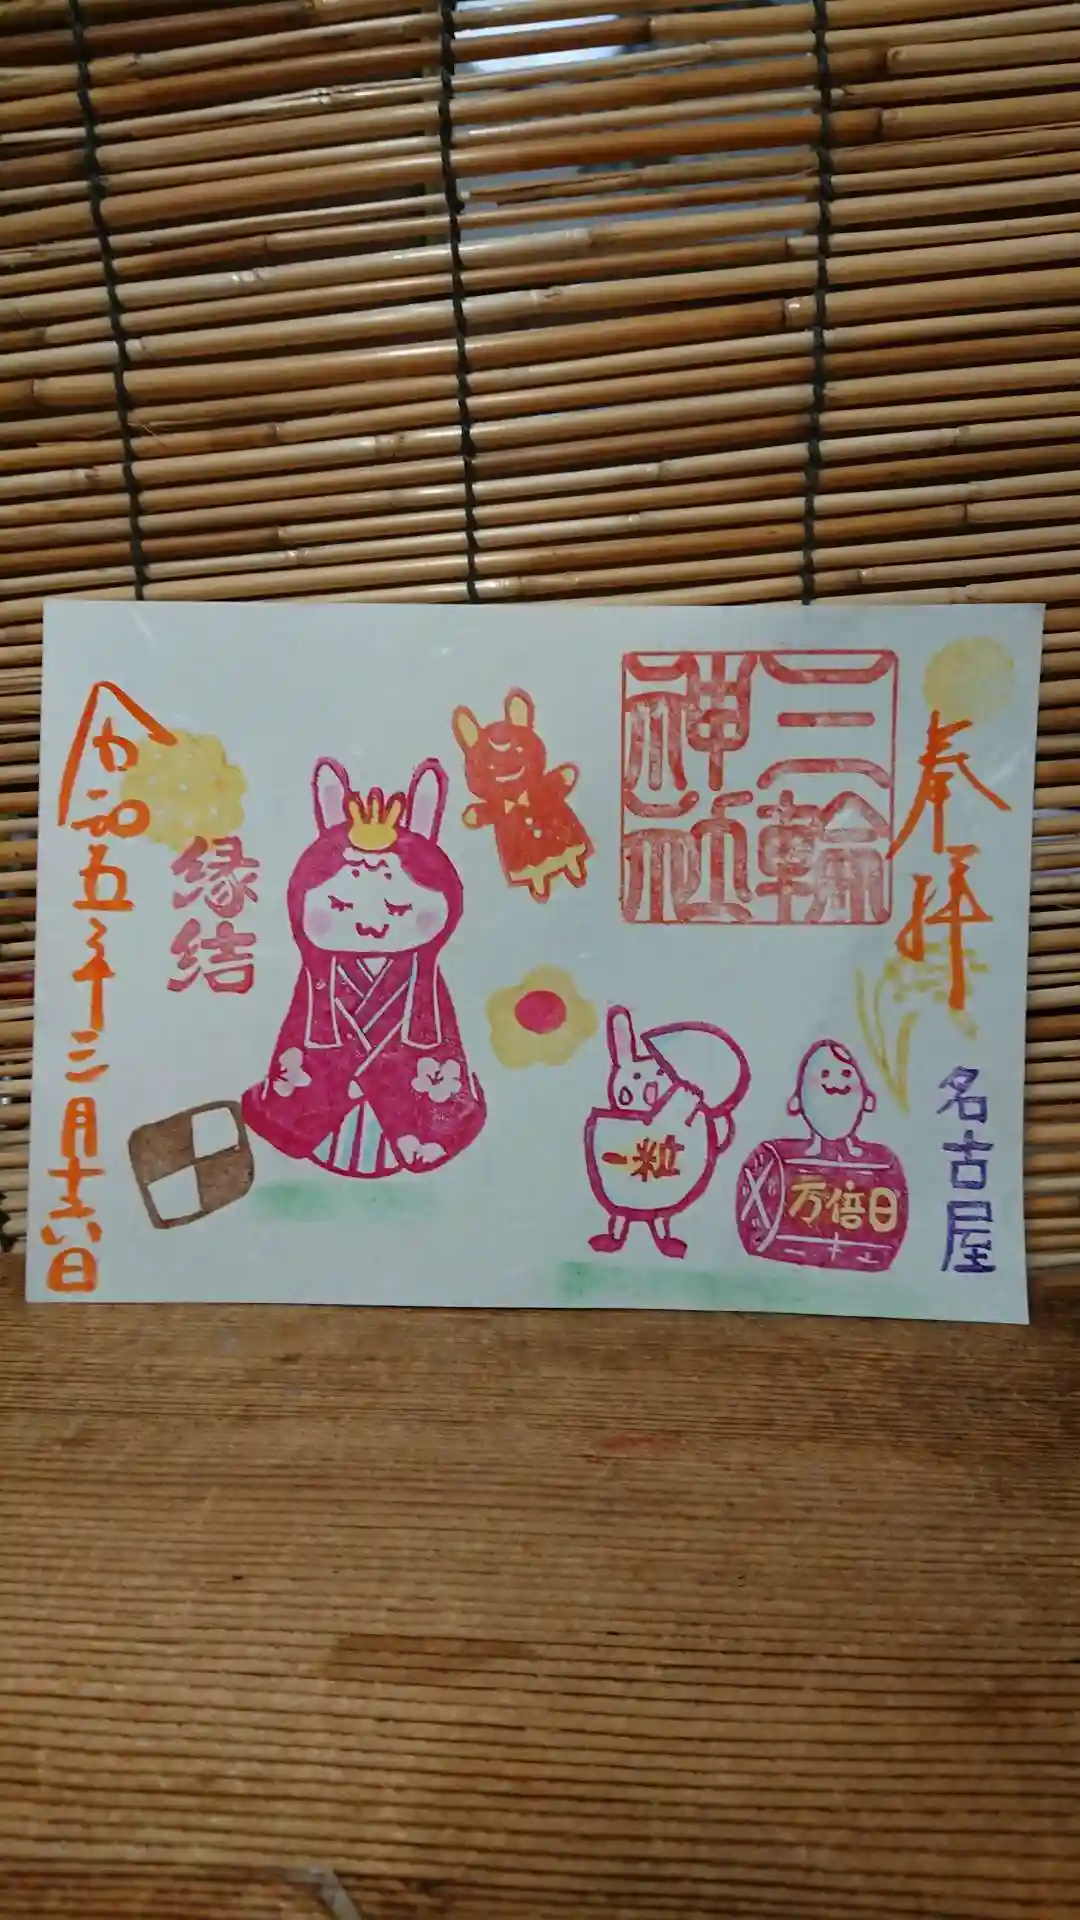 奉拝
名古屋
三輪
神社
一粒
万倍日
縁結
令和五年三月十六日